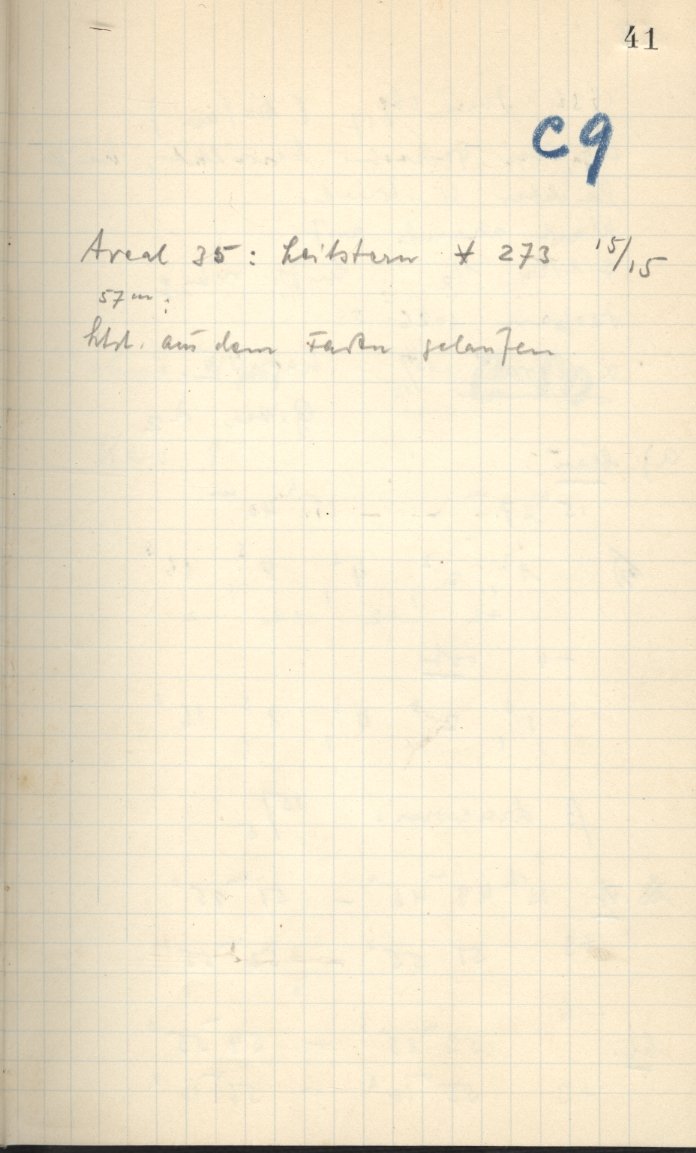 41
C9
Areal 35: Leitstern * 273 15/15
57m:
aus dem Faden gelaufen